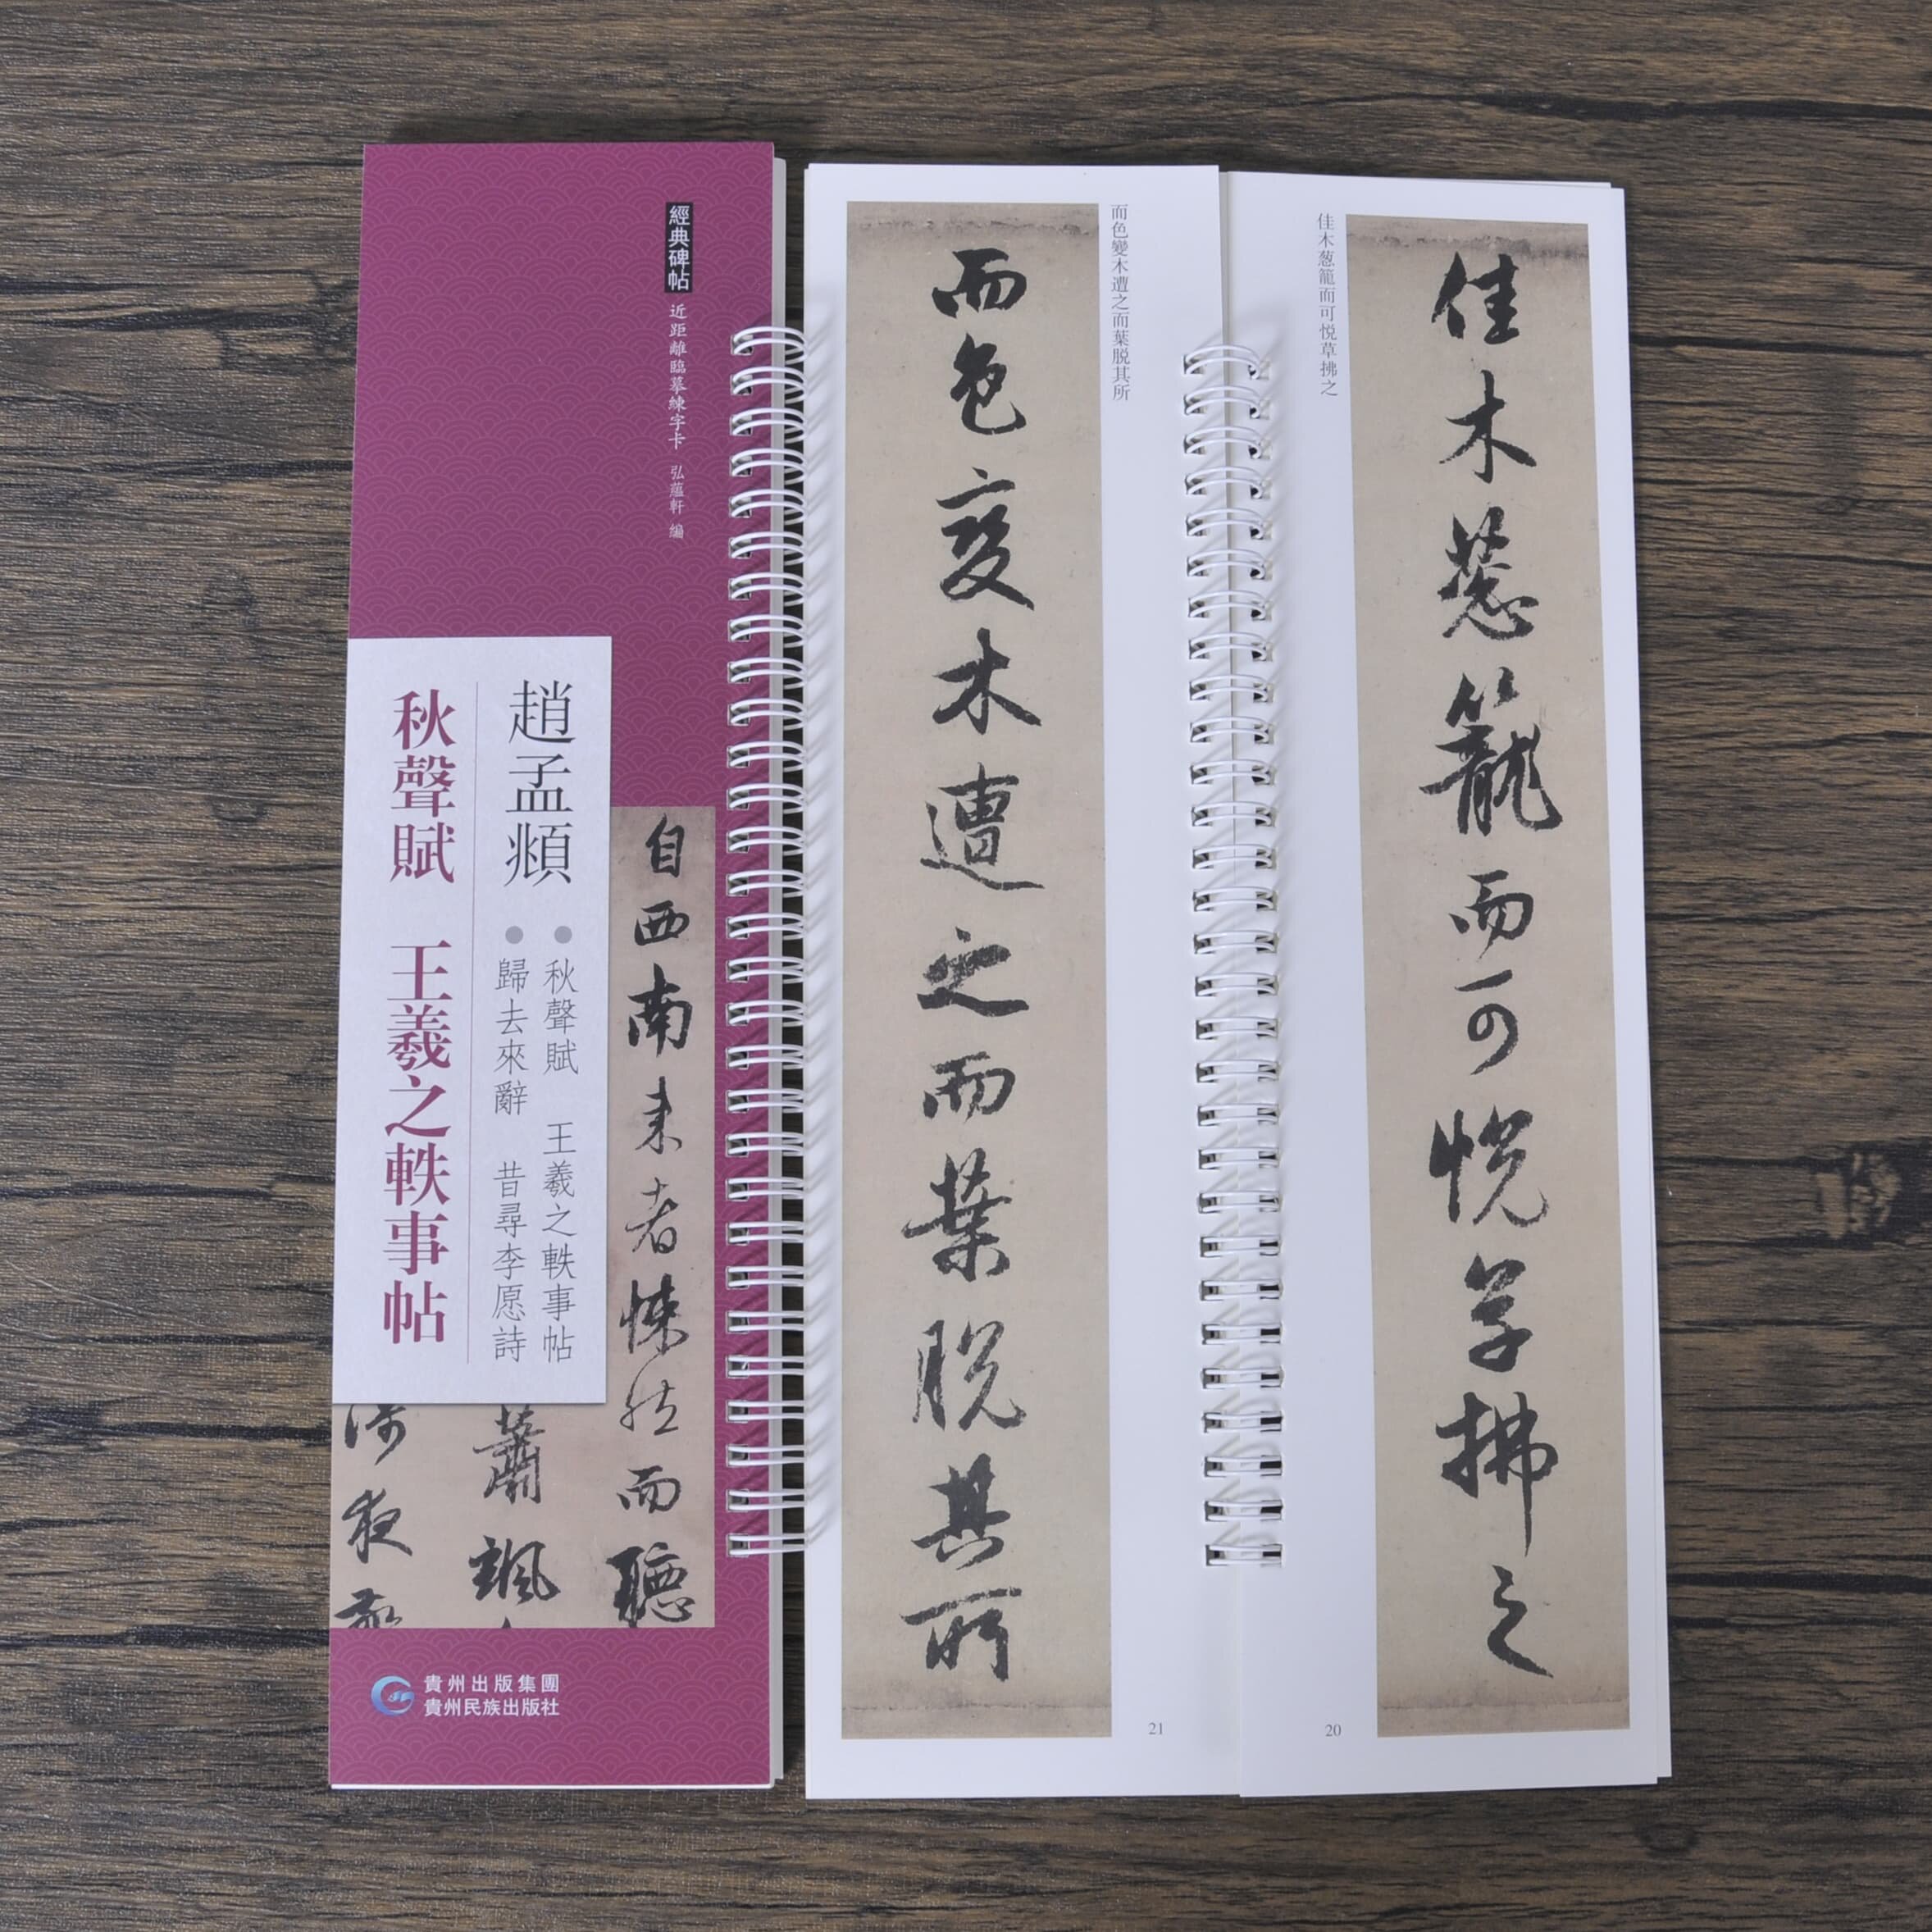 經典碑帖 近距離臨摹練字卡 弘蘊軒 編
趙孟頫
秋聲賦 王羲之軼事帖
歸去來辭 昔尋李愿詩
秋聲賦 王羲之軼事帖
自西南来者悚然而聽
蕭颯
夜
貴州出版集團
貴州民族出版社
佳木葱籠而可悦草拂之
佳木葱籠而可悦草拂之
20
而色變木遭之而葉脱其所
而色變木遭之而葉脱其所
21